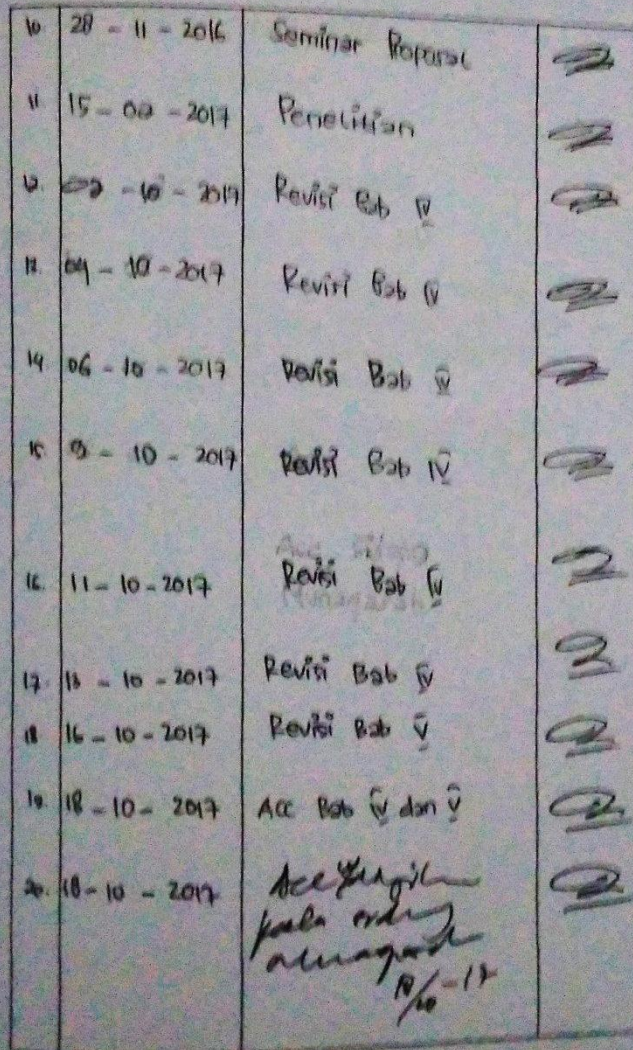 10. 28 - 11 - 2016 Seminar Proposal
11 15 - 02 - 2017 Penelitian
12. 02 - 10 - 2017 Revisi Bab IV
13. 04 - 10 - 2017 Revisi Bab IV
14 06 - 10 - 2017 Revisi Bab IV
15 9 - 10 - 2017 Revisi Bab IV
Acc Sidang
16. 11 - 10 - 2017 Revisi Bab IV
Munaqasah
17. 13 - 10 - 2017 Revisi Bab IV
18 16 - 10 - 2017 Revisi Bab V
19. 18 - 10 - 2017 Acc Bab IV dan V
20. 18 - 10 - 2017 Acc
pada